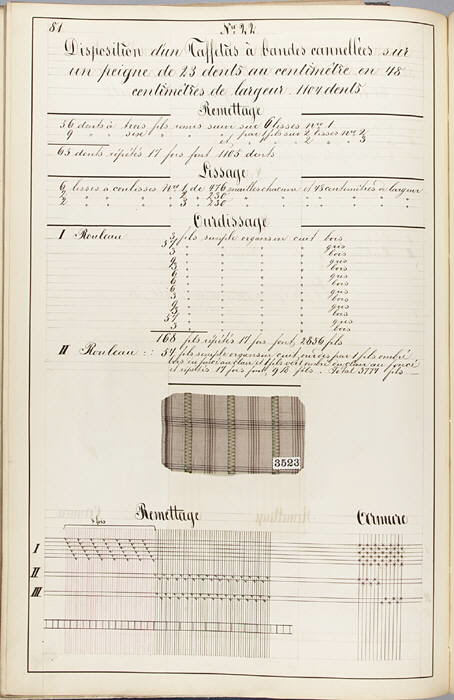 81
Nº 22
Disposition d'un Taffetas à bandes cannellées sur
un peigne de 23 dents au centimètre en 48
centimètres de largeur 1104 dents
Remettage
56 dents à trois fils remis suivi sur 6 lisses nº 1
9 " " six " " " par fils sur 2 lisses nº 2
et " " 2 " " 3
65 dents répétés 17 fois font 1105 dents
Lissage
6 lisses à coulisses Nº 1 de 476 mailles chacune et 48 centimètres de largeur
2 " " " 2 " 230 " " "
2 " " " 3 " 230 " " "
Ourdissage
I Rouleau 3 fils simple organsin cuit bois
57 " " " " gris
3 " " " " bois
" " " " gris
" " " " bois
6 " " " " gris
6 " " " " bois
6 " " " " gris
3 " " " " bois
" " " " gris
" " " " bois
57 " " " " gris
3 " " " " bois
168 fils répétés 17 fois font 2856 fils
II Rouleau :: 54 fils simple organsin cuit, ourdis par 1 fils ombré
bois du foncé au clair et 1 fils vert ombré du clair au foncé
et répétés 17 fois font 918 fils . Total 3774 fils
3523
Remettage
Armure
fois
I
II
III